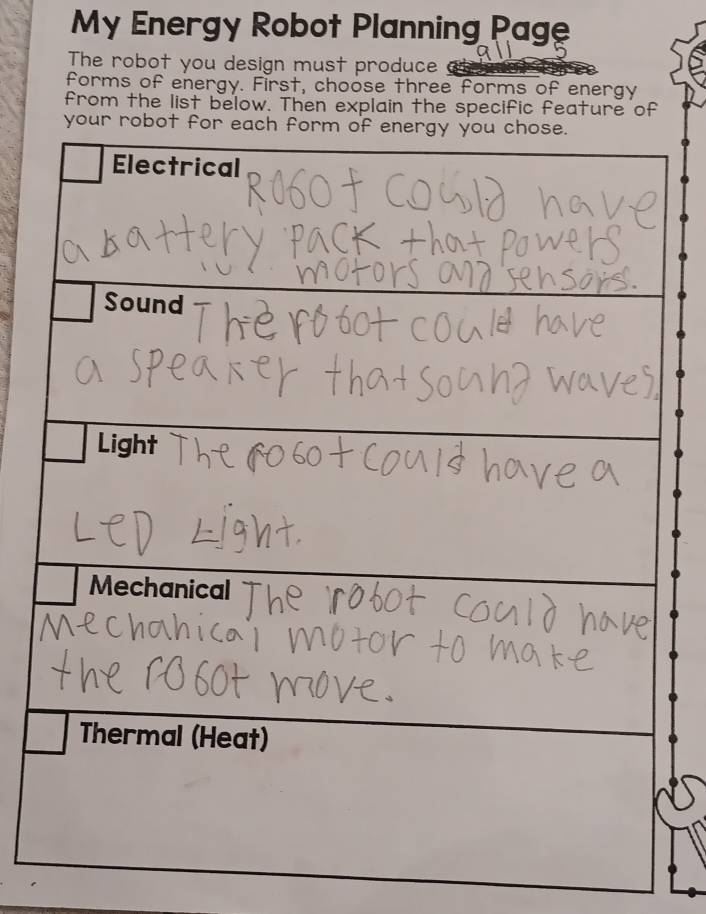 My Energy Robot Planning Page
all 5
The robot you design must produce
forms of energy. First, choose three forms of energy
from the list below. Then explain the specific feature of
your robot for each form of energy you chose.
Electrical Robot could have
a battery pack that powers
motors and sensors.
Sound The robot could have
a speaker that sound waves.
Light The robot could have a
LED Light.
Mechanical The robot could have
Mechanical motor to make
the robot move.
Thermal (Heat)